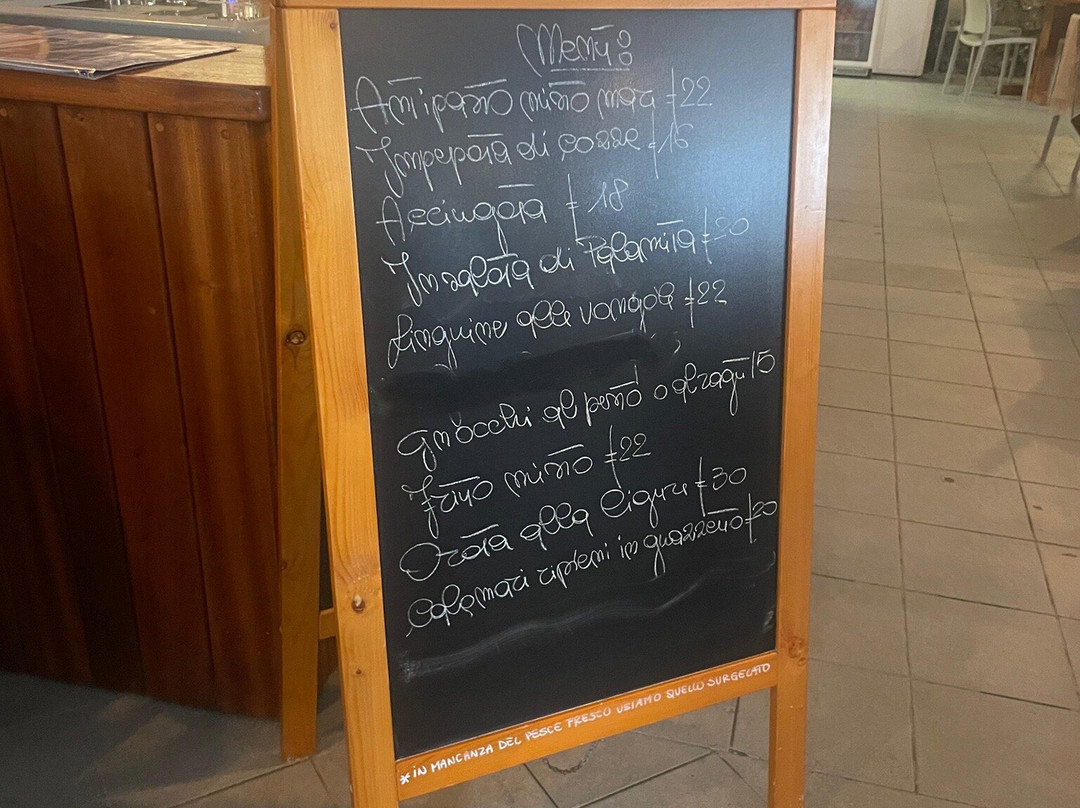 Menù:
Antipasto misto mar € 22
Impepata di cozze € 16
Acciugata € 18
Insalata di Palamita € 20
Linguine alle vongole € 22
gnocchi al pesto o al ragù 15
Fritto misto € 22
Orata alla ligure € 30
Calamari ripieni in guazzetto € 20
* IN MANCANZA DEL PESCE FRESCO USIAMO QUELLO SURGELATO